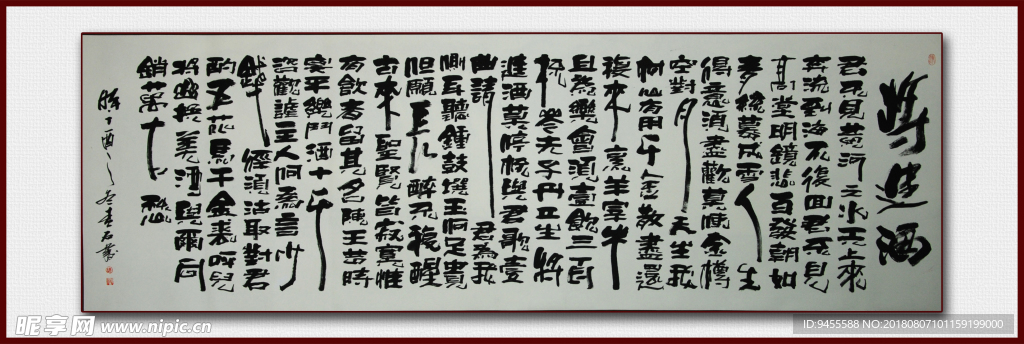 將進酒
君不見黃河之水天上來
奔流到海不復回君不見
高堂明鏡悲百發朝如
青絲暮成雪人生
得意須盡歡莫使金樽
空對月天生我
材必有用千金散盡還
複來烹羊宰牛
且為樂會須壹飲三百
杯岑夫子丹丘生將
進酒莫停杯與君歌壹
曲請君為我
側耳聽鍾鼓饌玉何足貴
但願長醉不複醒
古來聖賢皆寂寞惟
有飲者留其名陳王昔時
宴平樂鬥酒十千
恣歡謔主人何為言少
錢徑須沽取對君
酌五花馬千金裘呼兒
將出換美酒與爾同
銷萬古愁
丁酉
昵享网 www.nipic.cn
ID:9455588 NO:20180807101159199000